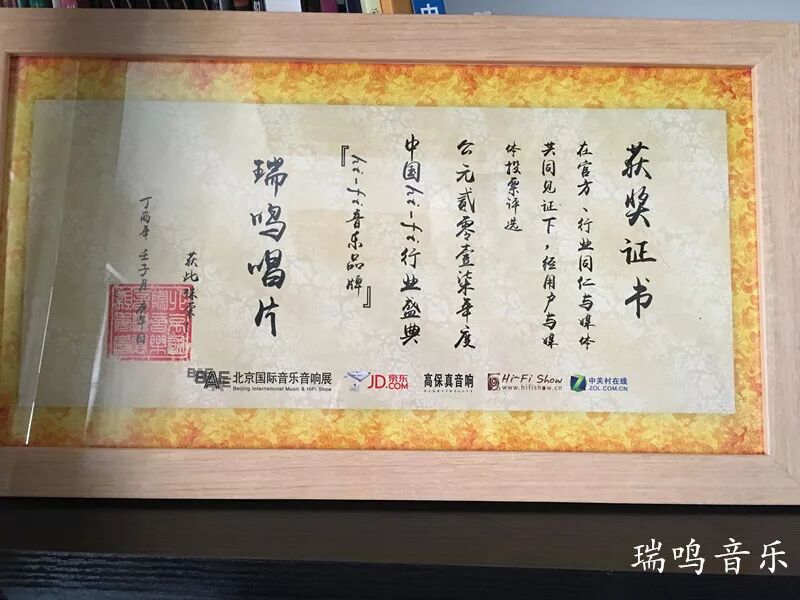 获奖证书
在官方、行业同仁与媒体
共同见证下，经用户与媒
体投票评选
公元贰零壹柒年度
中国hi-fi行业盛典
『hi-fi音乐品牌』
瑞鸣唱片
获此殊荣！
丁酉年 壬子月 庚午日
BAE 北京国际音乐音响展
Beijing International Music & HiFi Show
JD.京东
.COM
高保真音响
Hi-Fi Show
www.hifishow.cn
Z 中关村在线
ZOL.COM.CN
瑞鸣音乐